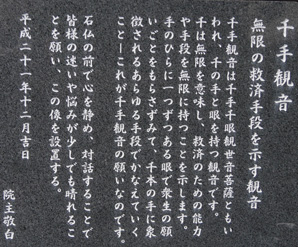 千手観音
無限の救済手段を示す観音
千手観音は千手千眼観世音菩薩ともい
われ、千の手と眼を持つ観音です。
千は無限を意味し、救済のための能力
や手段を無限に持つことを示します。
手のひらに一つずつある眼で衆生の願
いごとをもらさずみて、千本の手に象
徴されるあらゆる手段でかなえていく
こと―これが千手観音の願いなのです。
石仏の前で心を静め、対話することで
皆様の迷いや悩みが少しでも晴れるこ
とを願い、この像を設置する。
平成二十一年十二月吉日
院主敬白